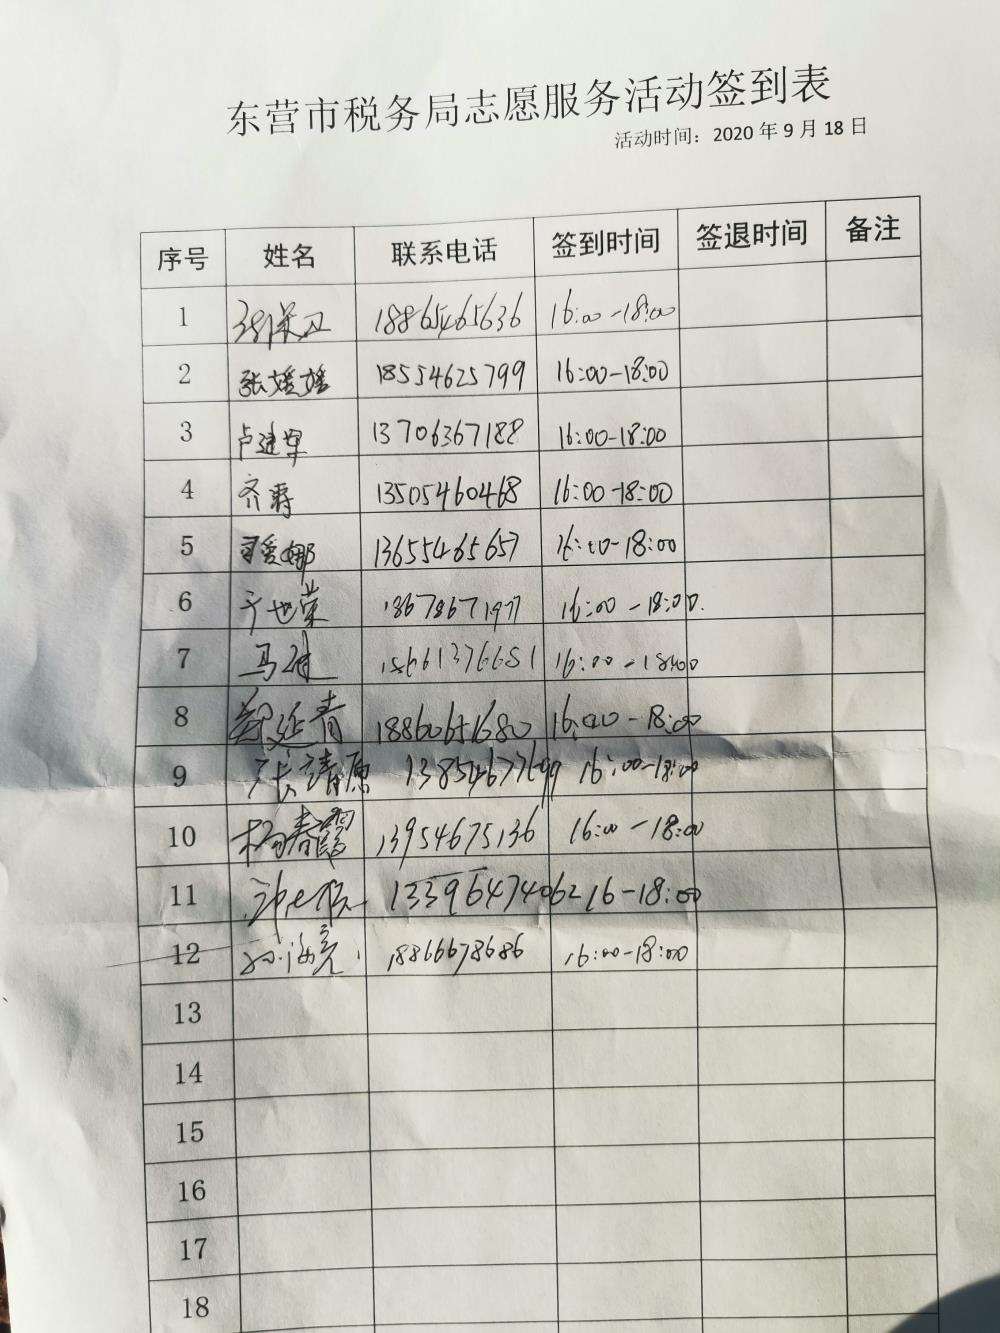 东营市税务局志愿服务活动签到表
活动时间：2020 年 9 月 18 日
序号 姓名 联系电话 签到时间 签退时间 备注
1 18865465636 16:00-18:00
2 张媛媛 18554625799 16:00-18:00
3 卢建军 13706367188 16:00-18:00
4 齐爵 13505460468 16:00-18:00
5 爱娜 13655465657 16:00-18:00
6 于世荣 18678671977 16:00-18:00.
7 马 16:00-18:00
8 郑延青 16:00-18:00
9 张清原 13854677699 16:00-18:00
10 杨春霞 13954675136 16:00-18:00
11 13396474062 16-18:00
12 孙海亮 18866678686 16:00-18:00
13
14
15
16
17
18